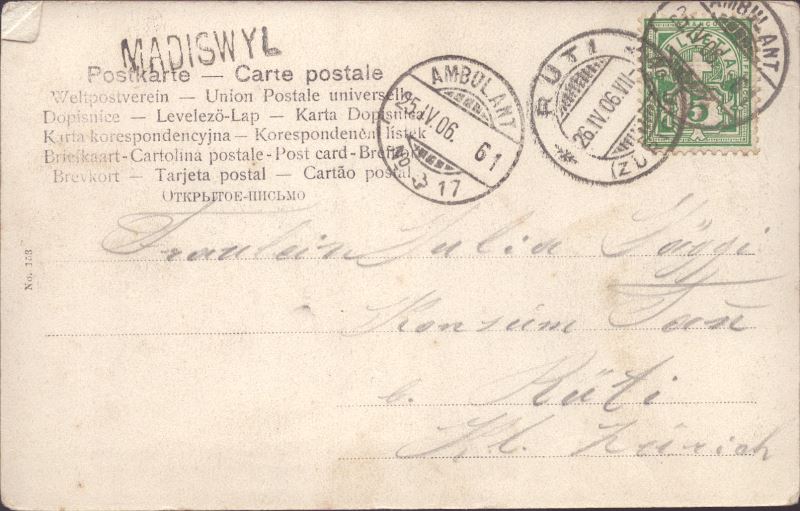 MADISWYL
Postkarte — Carte postale
Weltpostverein — Union Postale universelle
Dopisnice — Levelezö-Lap — Karta Dopisnica
Karta korespondencyjna — Korespondenční listek
Briefkaart - Cartolina postale - Post card - Brefkort
Brevkort — Tarjeta postal — Cartão postal
ОТКРЫТОЕ-ПИСЬМО
AMBULANT
25.IV.06. 61
No 17
RUTI
26.IV.06.VII-
(ZÜRICH)
AMBULANT
FRANCO
5
No. 153
Fräulein Julia Jäggi
Konsum Tan
b. Rüti
Kt. Zürich